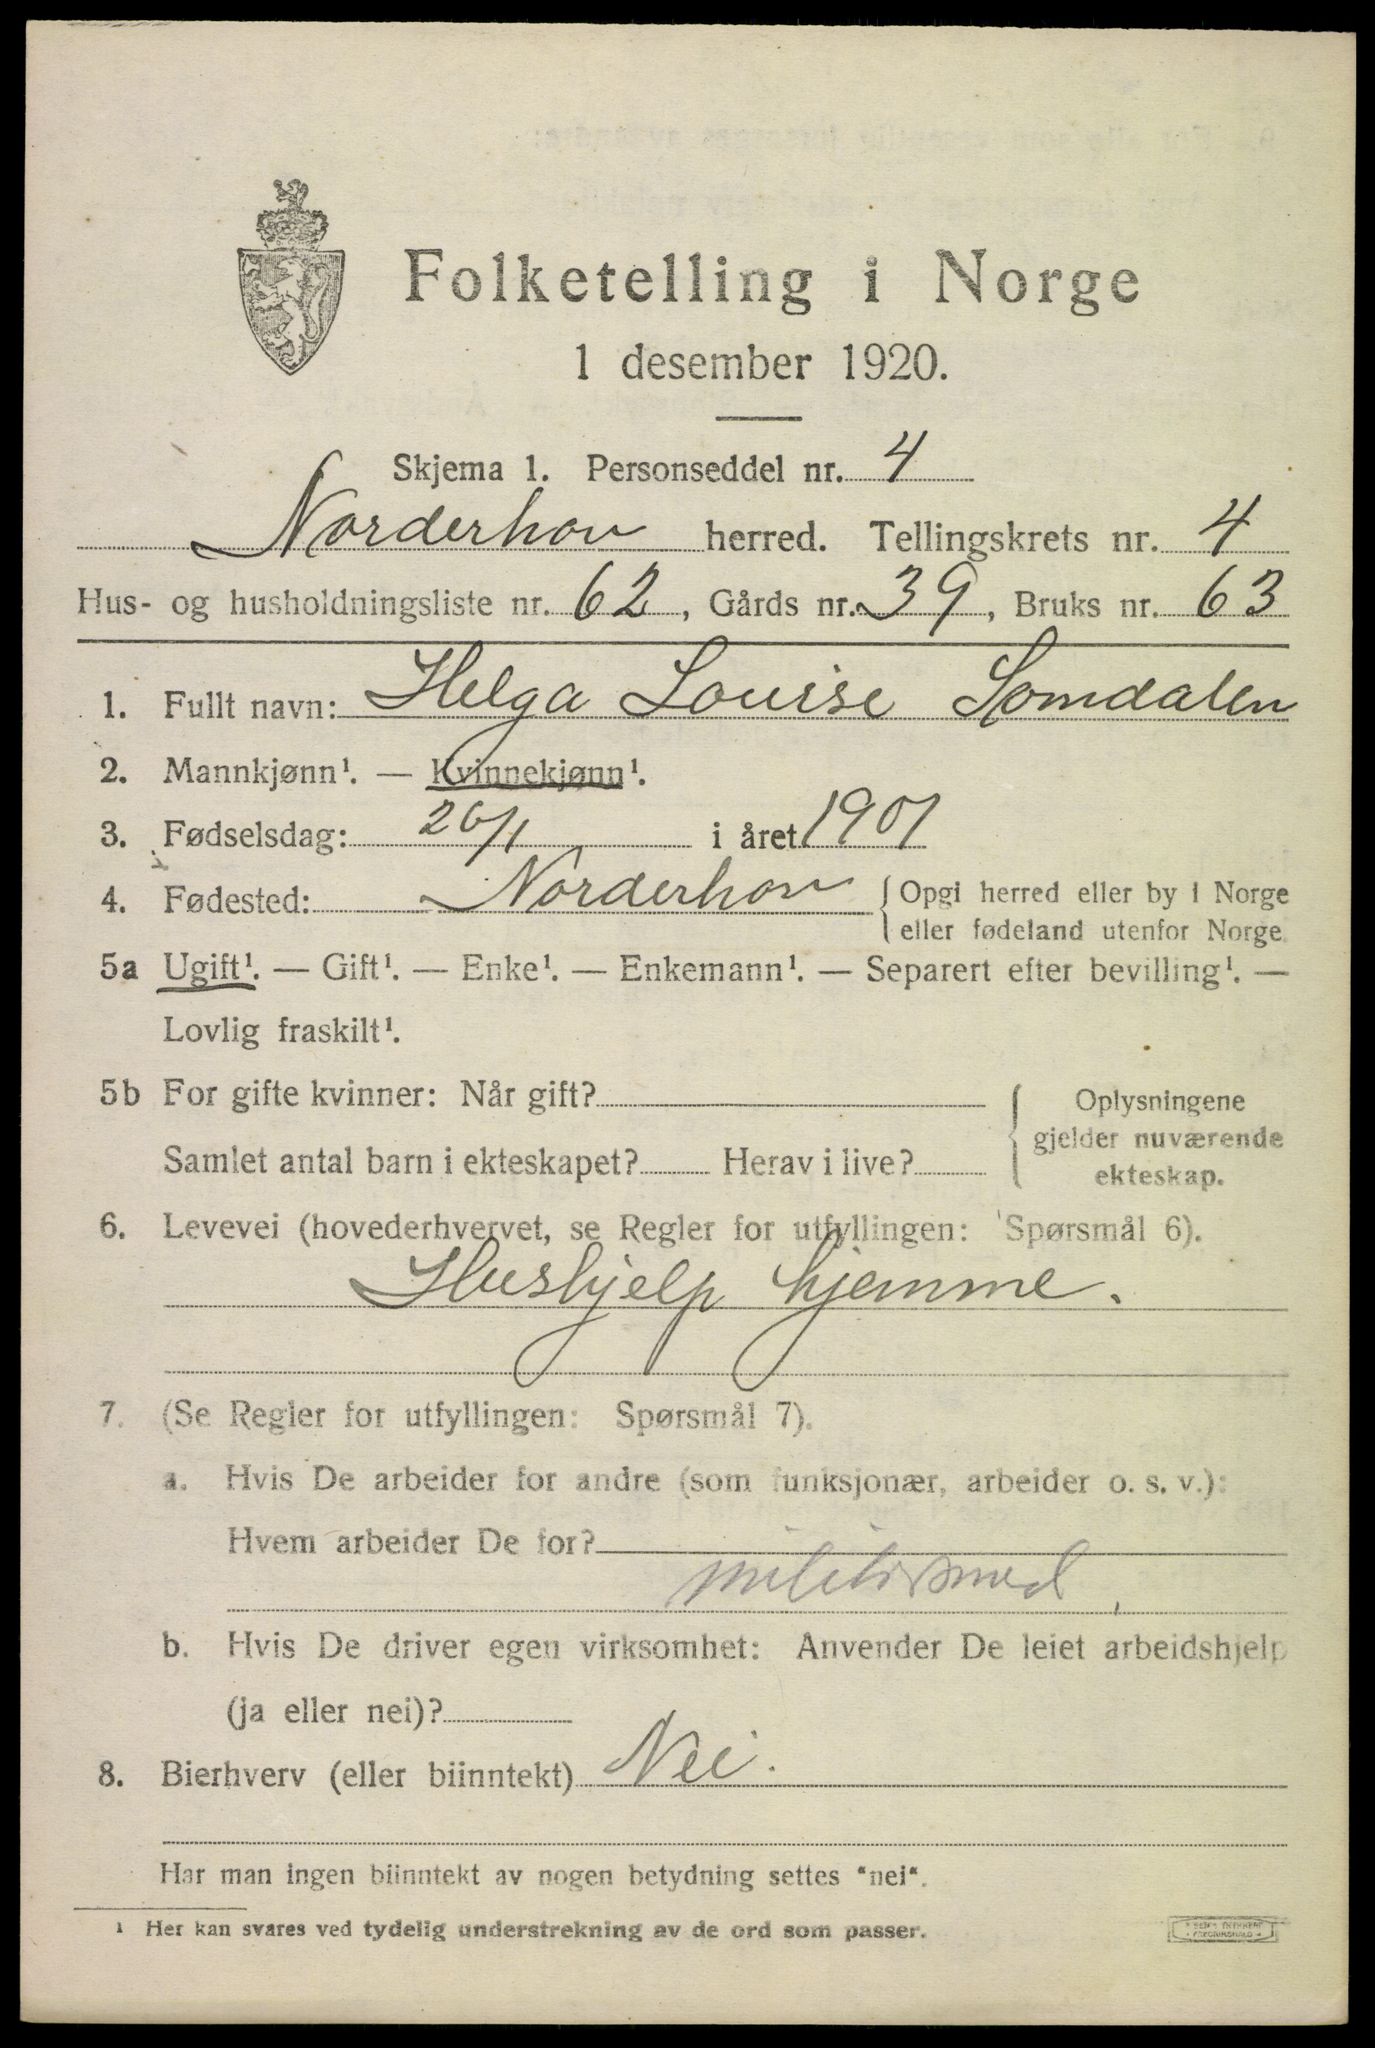 Folketelling i Norge
1 desember 1920.
Skjema 1. Personseddel nr. 4
Norderhov herred. Tellingskrets nr. 4
Hus- og husholdningsliste nr. 62, Gårds nr. 39, Bruks nr. 63
1. Fullt navn: Helga Louise Somdalen
2. Mannkjønn¹. — Kvinnekjønn¹.
3. Fødselsdag: 26/1 i året 1901
4. Fødested: Norderhov { Opgi herred eller by i Norge
eller fødeland utenfor Norge.
5a Ugift¹. — Gift¹. — Enke¹. — Enkemann¹. — Separert efter bevilling¹. —
Lovlig fraskilt¹.
5b For gifte kvinner: Når gift?
Samlet antal barn i ekteskapet? Herav i live?
{ Oplysningene
gjelder nuværende
ekteskap.
6. Levevei (hovederhvervet, se Regler for utfyllingen: Spørsmål 6).
Hushjelp hjemme.
7. (Se Regler for utfyllingen: Spørsmål 7).
a. Hvis De arbeider for andre (som funksjonær, arbeider o. s. v.):
Hvem arbeider De for?
b. Hvis De driver egen virksomhet: Anvender De leiet arbeidshjelp
(ja eller nei)?
8. Bierhverv (eller biinntekt) Nei.
Har man ingen biinntekt av nogen betydning settes "nei".
¹ Her kan svares ved tydelig understrekning av de ord som passer.